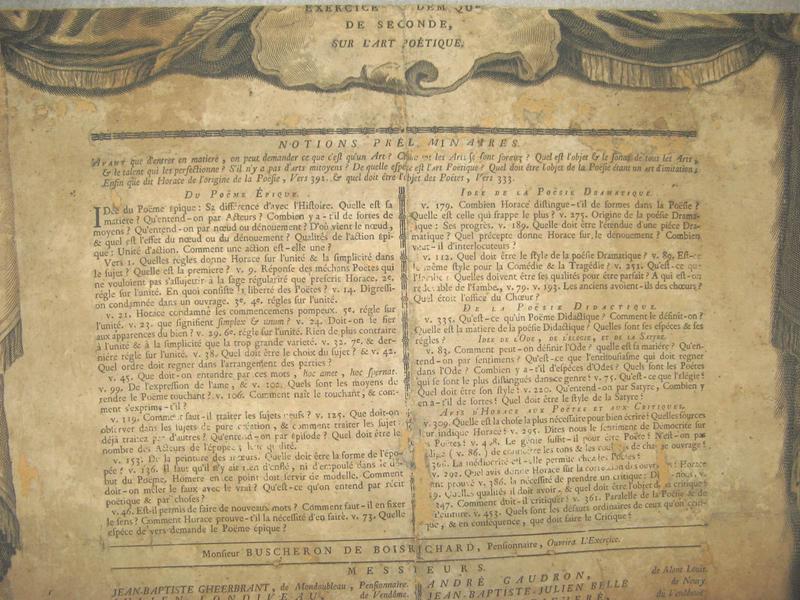 EXERCICE
DE SECONDE,
SUR L'ART POËTIQUE.
NOTIONS PRÉLIMINAIRES.
AVANT que d'entrer en matiere, on peut demander ce que c'est qu'un Art? les Arts se sont formez? Quel est l'objet & le fonds de tous les Arts,
& le talent qui les perfectionne? S'il n'y a pas d'arts mitoyens? De quelle espéce est l'art Poëtique? Quel doit être l'objet de la Poësie étant un art d'imitation?
Enfin que dit Horace de l'origine de la Poësie, Vers 391. & quel doit être l'objet des Poëtes, Vers 333.
DU POËME ÉPIQUE.
IDée du Poëme épique: Sa différence d'avec l'Histoire. Quelle est sa
matiere? Qu'entend-on par Acteurs? Combien y a-t-il de sortes de
moyens? Qu'entend-on par nœud ou dénouement? D'où vient le nœud,
& quel est l'effet du nœud ou du dénouement? Qualités de l'action épi-
que: Unité d'action. Comment une action est-elle une?
Vers 1. Quelles régles donne Horace sur l'unité & la simplicité dans
le sujet? Quelle est la premiere? v. 9. Réponse des méchans Poëtes qui
ne vouloient pas s'assujettir à la sage régularité que prescrit Horace. 2e.
régle sur l'unité. En quoi consiste la liberté des Poëtes? v. 14. Digressi-
on condamnée dans un ouvrage. 3e. 4e. régles sur l'unité.
v. 21. Horace condamne les commencemens pompeux. 5e. régle sur
l'unité. v. 23. que signifient simplex & unum? v. 24. Doit-on se fier
aux apparences du bien? v. 29. 6e. régle sur l'unité. Rien de plus contraire
à l'unité & à la simplicité que la trop grande varieté. v. 32. 7e. & der-
niére régle sur l'unité. v. 38. Quel doit être le choix du sujet? & v. 42.
Quel ordre doit regner dans l'arrangement des parties?
v. 45. Que doit-on entendre par ces mots, hoc amet, hoc spernat.
v. 99. De l'expression de l'ame, & v. 102. Quels sont les moyens de
rendre le Poëme touchant? v. 106. Comment naît le touchant, & com-
ment s'exprime-t-il?
v. 119. Comment faut-il traiter les sujets neufs? v. 125. Que doit-on
observer dans les sujets de pure création, & comment traiter les sujets
déjà traitez par d'autres? Qu'entend-on par épisode? Quel doit être le
nombre des Acteurs de l'épopée & leur qualité.
v. 153. De la peinture des mœurs. Quelle doit être la forme de l'épo-
pée? v. 136. Il faut qu'il n'y ait rien d'enflé, ni d'empoulé dans le dé-
but du Poëme. Homére en ce point doit servir de modelle. Comment
doit-on mêler le faux avec le vrai? Qu'est-ce qu'on entend par récit
poëtique & par choses?
v. 46. Est-il permis de faire de nouveaux mots? Comment faut-il en fixer
le sens? Comment Horace prouve-t-il la nécessité d'en faire. v. 73. Quelle
espéce de vers demande le Poëme épique?
IDÉE DE LA POËSIE DRAMATIQUE.
v. 179. Combien Horace distingue-t-il de formes dans la Poësie?
Quelle est celle qui frappe le plus? v. 275. Origine de la poësie Drama-
tique: Ses progrès. v. 189. Quelle doit être l'étendue d'une piéce Dra-
matique? Quel précepte donne Horace sur le dénouement? Combien
veut-il d'interlocuteurs?
v. 112. Quel doit être le style de la poësie Dramatique? v. 89. Est-ce
le même style pour la Comédie & la Tragédie? v. 251. Qu'est-ce que
l'Iambe? Quelles doivent être ses qualités pour être parfait? A qui est-on
redevable de l'Iambe, v. 79. v. 193. Les anciens avoient-ils des chœurs?
Quel étoit l'office du Chœur?
DE LA POËSIE DIDACTIQUE.
v. 335. Qu'est-ce qu'un Poëme Didactique? Comment le définit-on?
Quelle est la matiere de la poësie Didactique? Quelles sont ses espéces & ses
régles? IDÉE DE L'ODE, DE L'ÉLÉGIE, ET DE LA SATYRE.
v. 83. Comment peut-on définir l'Ode? quelle est sa matiére? Qu'en-
tend-on par sentimens? Qu'est-ce que l'enthousiasme qui doit regner
dans l'Ode? Combien y a-t-il d'espéces d'Odes? Quels sont les Poëtes
qui se sont le plus distingués dans ce genre? v. 75. Qu'est-ce que l'élégie?
Quel doit être son style? v. 220. Qu'entend-on par Satyre, Combien y
en a-t-il de sortes? Quel doit être le style de la Satyre?
AVIS D'HORACE AUX POËTES ET AUX CRITIQUES.
v. 309. Quelle est la chose la plus nécessaire pour bien écrire? Quelles sources
leur indique Horace? v. 295. Dites nous le sentiment de Démocrite sur
les Poëtes? v. 408. Le génie suffit-il pour être Poëte? N'est-on pas
obligé (v. 86.) de connoître les tons & les couleurs de chaque ouvrage?
v. 366. La médiocrité est-elle permise chez les Poëtes?
v. 292. Quel avis donne Horace sur la correction des ouvrages? Horace
v. 386. la nécessité de prendre un critique: Dites-nous, v.
Quelles qualités il doit avoir, & quel doit être l'objet de sa critique?
v. 347. Comment doit-il critiquer? v. 361. Paralelle de la Poësie & de
la Peinture. v. 453. Quels sont les défauts ordinaires de ceux qu'on cri-
tique, & en conséquence, que doit faire le Critique?
Monsieur BUSCHERON DE BOISRICHARD, Pensionnaire, Ouvrira L'Exercice.
MESSIEURS.
JEAN-BAPTISTE GHEERBRANT, de Mondoubleau, Pensionnaire.
de Vendôme.
ANDRÉ GAUDRON, de Mont Louis.
JEAN-BAPTISTE-JULIEN BELLE de Nouy
du Vendômois